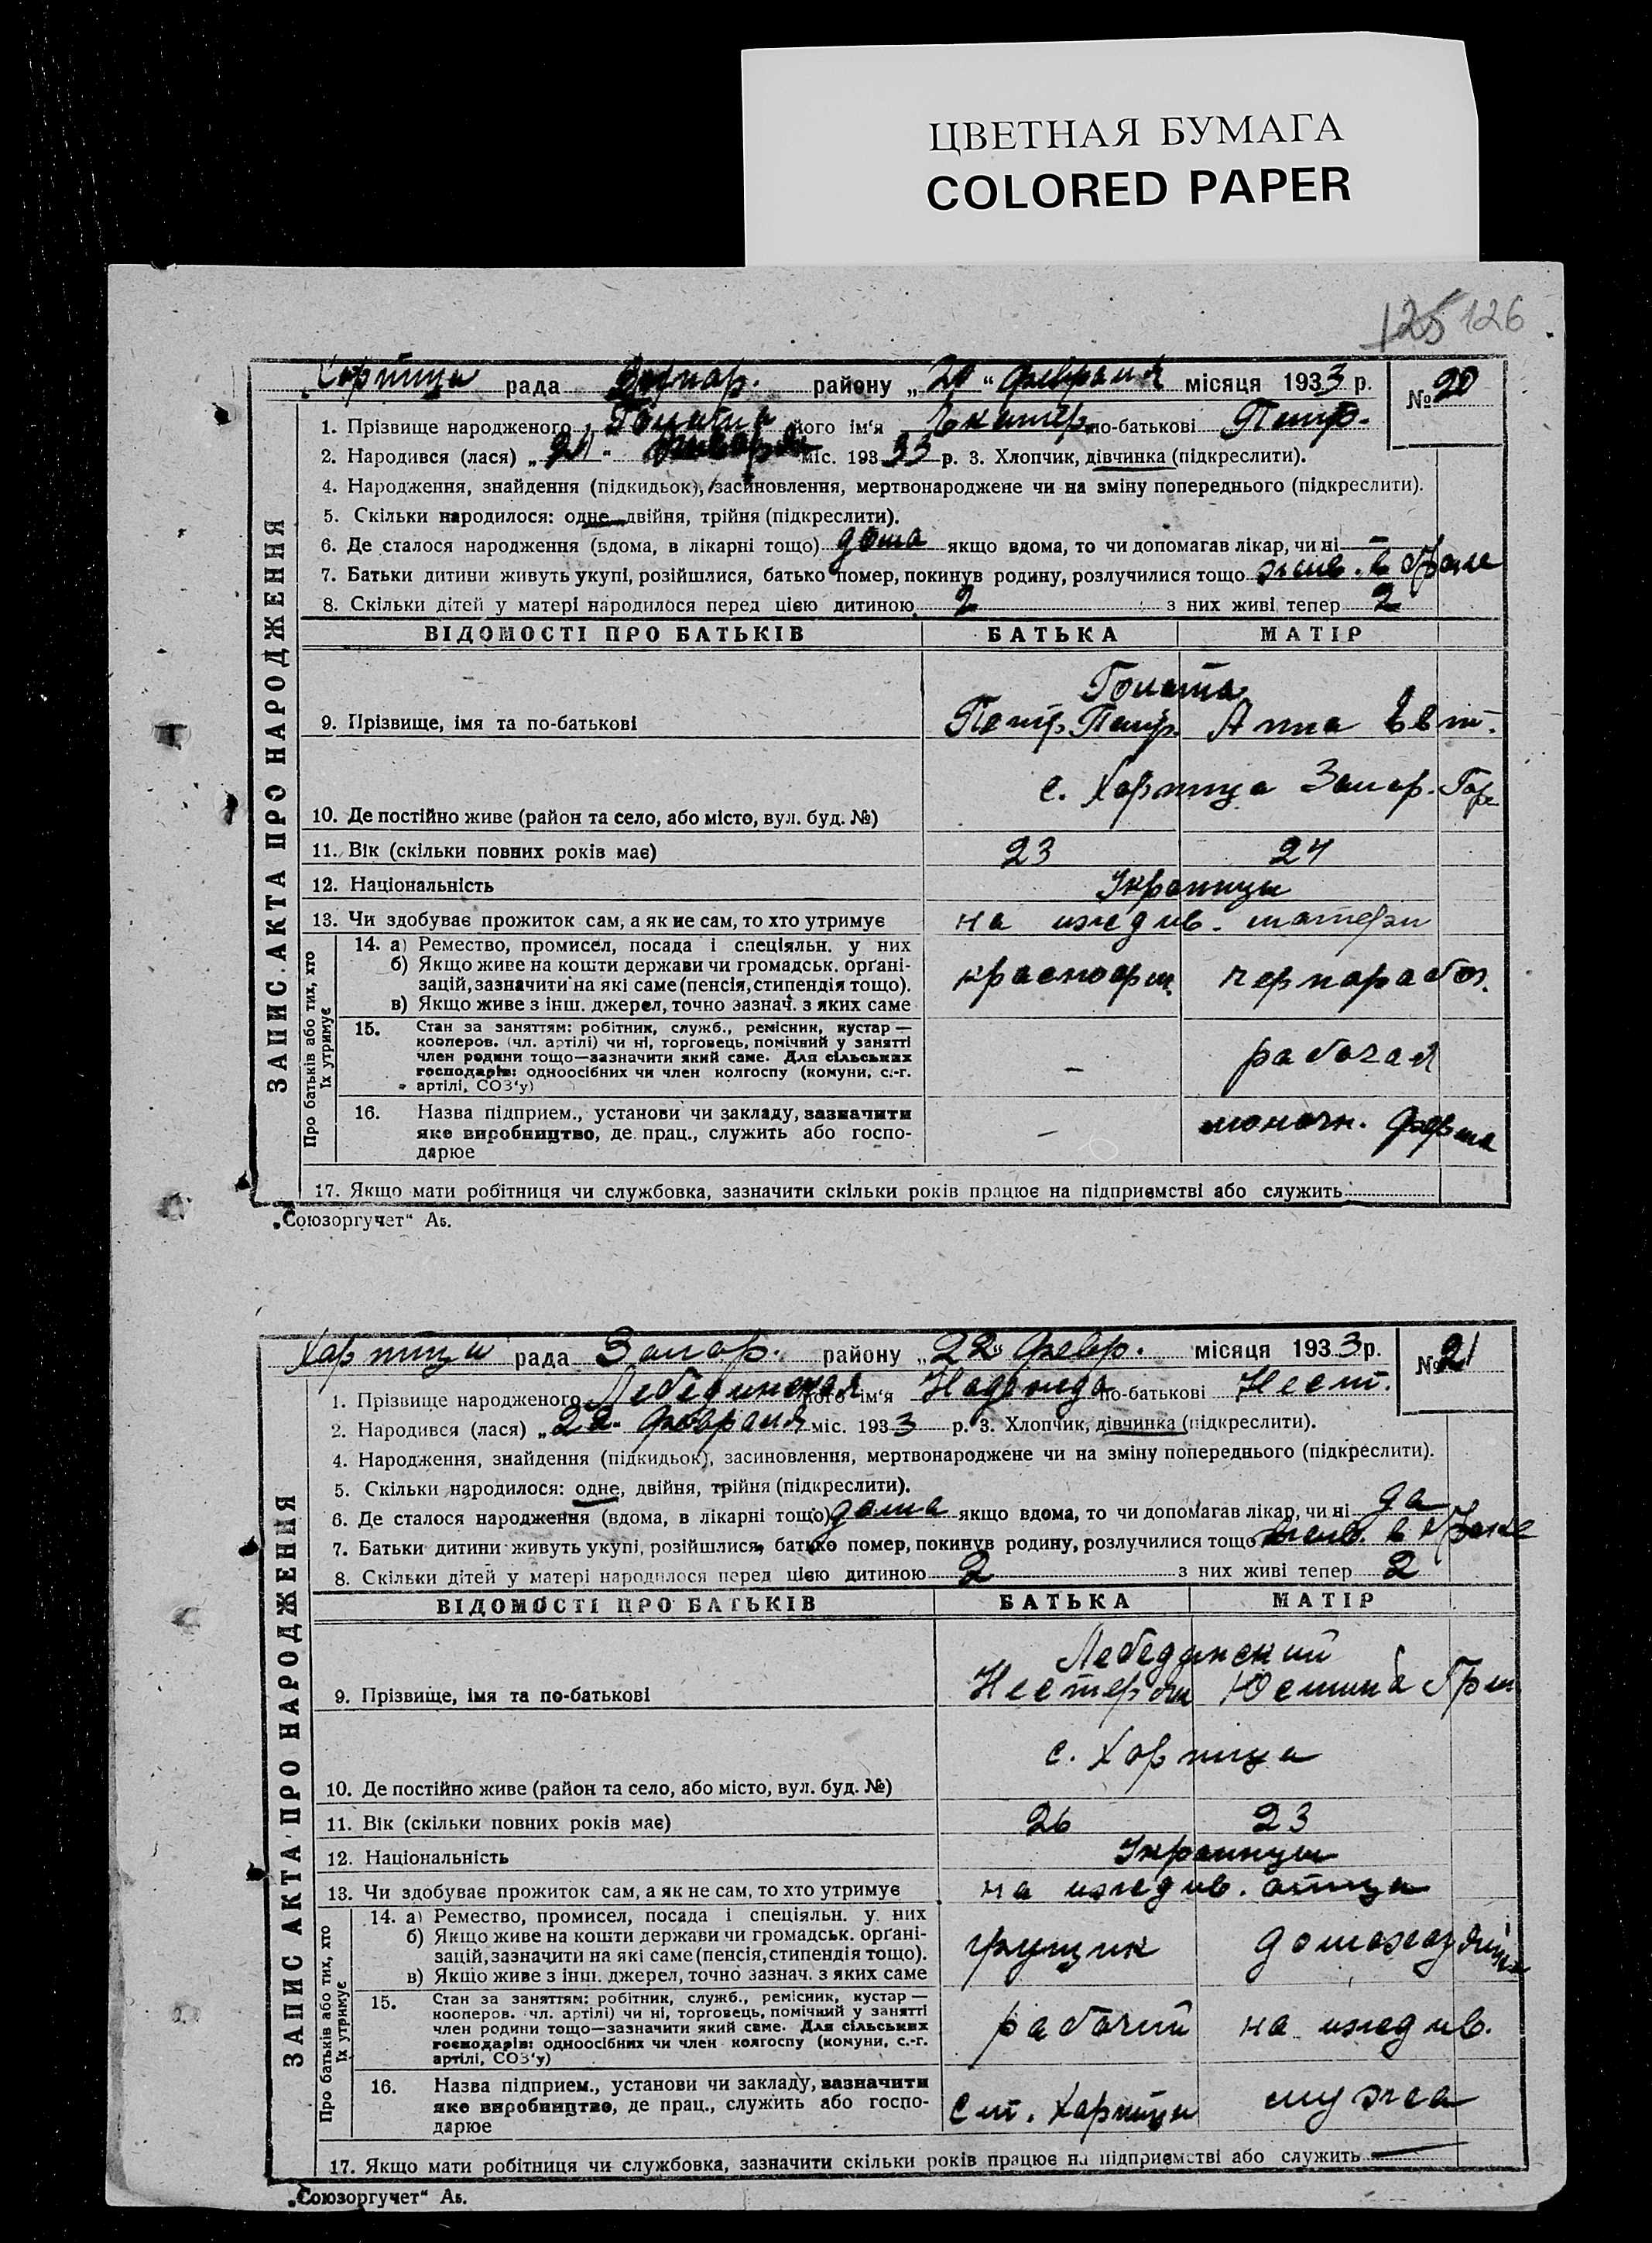 ЦВЕТНАЯ БУМАГА
COLORED PAPER
125 126
Хортица рада Запор. району „20“ февраля місяця 1933 р. № 20
1. Прізвище народженого Голота його ім‘я Екатер. по-батькові Петр.
2. Народився (лася) „20“ января міс. 193 33 р. 3. Хлопчик, дівчинка (підкреслити).
4. Народження, знайдення (підкидьок), засиновлення, мертвонароджене чи на зміну попереднього (підкреслити).
5. Скільки народилося: одне двійня, трійня (підкреслити).
6. Де сталося народження (вдома, в лікарні тощо) дома якщо вдома, то чи допомагав лікар, чи ні —
7. Батьки дитини живуть укупі, розійшлися, батько помер, покинув родину, розлучилися тощо жив. в браке
8. Скільки дітей у матері народилося перед цією дитиною 2 з них живі тепер 2
ВІДОМОСТІ ПРО БАТЬКІВ БАТЬКА МАТІР
Голота
9. Прізвище, імя та по-батькові Петр Петр. Анна Евт.
с. Хортица Запор. Гор
10. Де постійно живе (район та село, або місто, вул. буд. №)
11. Вік (скільки повних років має) 23 24
12. Національність Украинцы
13. Чи здобуває прожиток сам, а як не сам, то хто утримує на иждив. матери
14. а) Ремество, промисел, посада і спеціяльн. у них
б) Якщо живе на кошти держави чи громадськ. орґані-
зацій, зазначити на які саме (пенсія, стипендія тощо). красноарм. чернорабоч.
в) Якщо живе з інш. джерел, точно зазнач. з яких саме
15. Стан за заняттям: робітник, служб., ремісник, кустар —
кооперов. (чл. артілі) чи ні, торговець, помічний у занятті
член родини тощо—зазначити який саме. Для сільських
господарів: одноосібних чи член колгоспу (комуни, с.-г.
артілі, СОЗ‘у) — рабочая
16. Назва підприєм., установи чи закладу, зазначити
яке виробництво, де прац., служить або госпо-
дарює — молочн. ферма
17. Якщо мати робітниця чи службовка, зазначити скільки років працює на підприємстві або служить
ЗАПИС АКТА ПРО НАРОДЖЕННЯ
Про батьків або тих, хто
їх утримує
„Союзоргучет“ Аб.
Хортица рада Запор. району „22“ февр. місяця 1933 р. № 21
1. Прізвище народженого Лебединская його ім‘я Надежда по-батькові Нест.
2. Народився (лася) „22“ февраля міс. 1933 р. 3. Хлопчик, дівчинка (підкреслити).
4. Народження, знайдення (підкидьок), засиновлення, мертвонароджене чи на зміну попереднього (підкреслити).
5. Скільки народилося: одне, двійня, трійня (підкреслити).
6. Де сталося народження (вдома, в лікарні тощо) дома якщо вдома, то чи допомагав лікар, чи ні да
7. Батьки дитини живуть укупі, розійшлися, батько помер, покинув родину, розлучилися тощо жив. в браке
8. Скільки дітей у матері народилося перед цією дитиною 2 з них живі тепер 2
ВІДОМОСТІ ПРО БАТЬКІВ БАТЬКА МАТІР
Лебединский
9. Прізвище, імя та по-батькові Нестер Юстина Гри
с. Хортица
10. Де постійно живе (район та село, або місто, вул. буд. №)
11. Вік (скільки повних років має) 26 23
12. Національність Украинцы
13. Чи здобуває прожиток сам, а як не сам, то хто утримує на иждив. отца
14. а) Ремество, промисел, посада і спеціяльн. у них
б) Якщо живе на кошти держави чи громадськ. орґані-
зацій, зазначити на які саме (пенсія, стипендія тощо). грущик домохозяйка
в) Якщо живе з інш. джерел, точно зазнач. з яких саме
15. Стан за заняттям: робітник, служб., ремісник, кустар —
кооперов. чл. артілі) чи ні, торговець, помічний у занятті
член родини тощо—зазначити який саме. Для сільських
господарів: одноосібних чи член колгоспу (комуни, с.-г.
артілі, СОЗ‘у) рабочий на иждив.
16. Назва підприєм., установи чи закладу, зазначити
яке виробництво, де прац., служить або госпо-
дарює Ст. Хортица мужа
17. Якщо мати робітниця чи службовка, зазначити скільки років працює на підприємстві або служить —
ЗАПИС АКТА ПРО НАРОДЖЕННЯ
Про батьків або тих, хто
їх утримує
„Союзоргучет“ Аб.